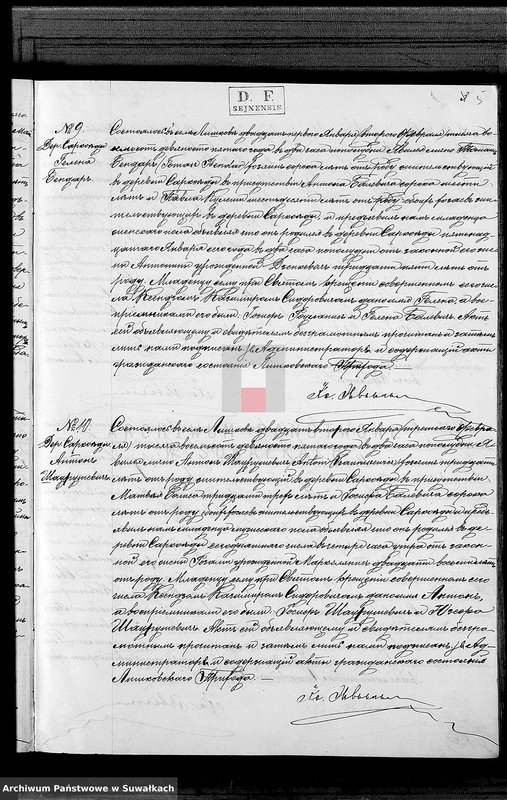 D. F.
SEJNENSIS
5
№ 9.
Дер. Сарксяды
Гелена
Бендаръ
Состоялось въ селѣ Лишковѣ двадцать перваго Января/ втораго Февраля/ тысяча во-
семьсотъ девяносто пятаго года въ два часа пополудни. Явился лично
Бендаръ /Bendar/ сорока лѣтъ отъ роду жительствующій
въ деревни Сарксяды въ присутствіи Антона Балевича сорока шести
лѣтъ и Павла шестидесяти лѣтъ отъ роду обоихъ жи-
тельствующихъ въ деревни Сарксяды, и предъявилъ намъ младенца
женскаго пола объявляя что онъ родился въ деревни Сарксяды
цатаго Января сего года въ два часа пополудни отъ законной его же-
ны Антонины урожденной тридцати пяти лѣтъ отъ
роду. Младенцу сему при Святомъ Крещеніи совершенномъ сего чи-
сла Ксендзомъ Казимиромъ Сидоровичемъ дано имя Гелена, а вос-
пріемниками его были: Іосифъ и Гелена Балевичъ. Актъ
сей объявляющему и свидѣтелямъ неграмотнымъ прочитанъ и затѣмъ
лишь нами подписанъ. Администраторъ и содержащій акты
гражданскаго состоянія Лишковскаго Прихода.
Кс.
№ 10.
Дер. Сарксяды
Антонъ
Шаурукевичъ
Состоялось въ селѣ Лишковѣ двадцать втораго Января/ третьяго Февра-
ля/ тысяча восемьсотъ девяносто пятаго года въ два часа пополудни. Я-
вился лично Антонъ Шаурукевичъ тридцати
лѣтъ отъ роду жительствующій въ деревни Сарксяды въ присутствіи
Матвѣя тридцати трехъ лѣтъ и Іосифа Балевича сорока
лѣтъ отъ роду обоихъ жительствующихъ въ деревни Сарксяды и предъ-
явилъ намъ младенца мужескаго пола объявляя что онъ родился въ де-
ревни Сарксяды сегоднашняго числа въ четыре часа утра отъ закон-
ной его жены Розаліи урожденной двадцати восьми лѣтъ
отъ роду. Младенцу сему при Святомъ Крещеніи совершенномъ сего
числа Ксендзомъ Казимиромъ Сидоровичемъ дано имя Антонъ,
а воспріемниками его были: Іосифъ Шаурукевичъ и
Шаурукевичъ. Актъ сей объявляющему и свидѣтелямъ негра-
мотнымъ прочитанъ и затѣмъ лишь нами подписанъ. Ад-
министраторъ и содержащій акты гражданскаго состоянія
Лишковскаго Прихода. —
Кс.
Archiwum Państwowe w Suwałkach